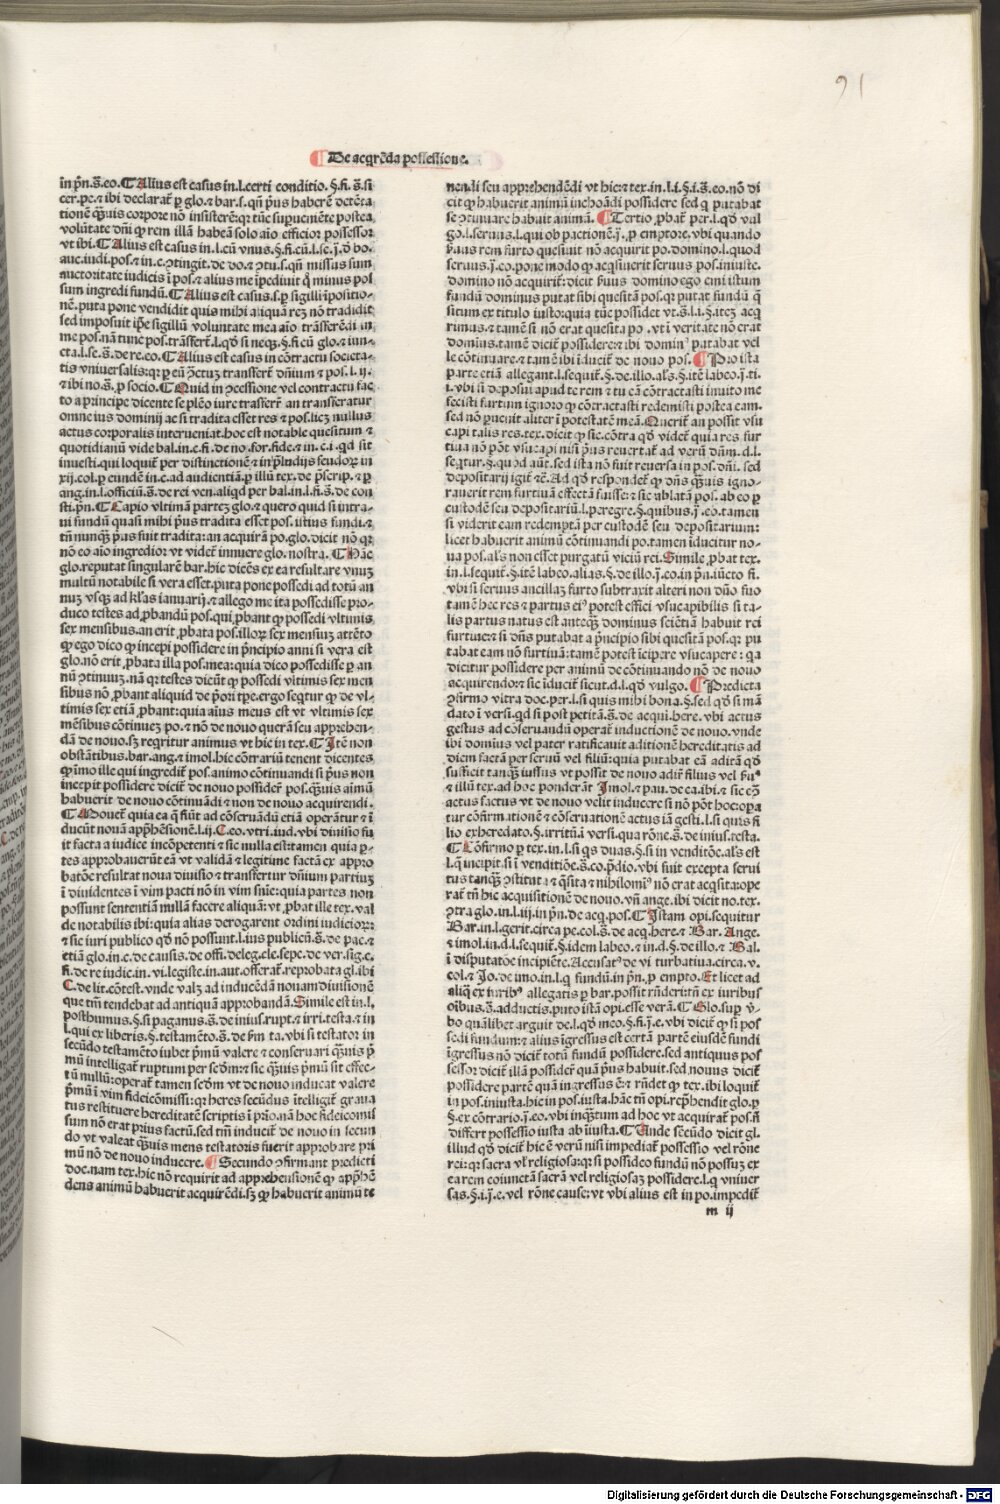 91
De acqrēda possessione.
in pͥn.s̄.eo. ¶ Alius est casus in.l.certi conditio.§.fi.s̄.si
cer.pe.⁊ ibi declarat̄ ꝑ glo.⁊ bar.s.qn̄ pͥus haberē detēta
tionē qͣuis corpore nō insisterē:qꝛ tūc suꝑueniēte postea
volūtate dn̄i ꝙ rem illā habeā solo aīo efficior possessor
vt ibi. ¶ Alius est casus in.l.cū vnus.§.fi.cū.l.se.ī.ō bo.
auc.iudi.pos.⁊ in.c.ↄtingit.de do.⁊ ↄtu.s.qn̄ missus sum
auctoritate iudicis ī pos.⁊ alius me īpediuit qͦ minus pos
sum ingredi fundū. ¶ Alius est casus.s.ꝑ sigilli īpositio-
nē.puta pone vendidit quis mihi aliquā reꝫ nō tradidit
sed imposuit ip̄e sigillū voluntate mea aīo trāsferē.ii in
me pos.nā tunc pos.trāsfert̄.l.qd̓ si neqꝫ.§.fi.cū glo.⁊ iun-
cta.l.se.s̄.de re.eo. ¶ Alius est casus in cōtractu societa-
tis vniuersalis:qꝛ ꝑ eū ↄ̄ctuꝫ transfert̄ dn̄ium ⁊ pos.l.ij.
⁊ ibi no.s̄.ꝓ socio. ¶ Quid in ↄcessione vel contractu fac
to a principe dicente se plēo iure trāsferr̄ an transferatur
omne ius dominij ac si tradita esset res ⁊ pos.licꝫ nullus
actus corporalis interueniat.hoc est notable quesitum ⁊
quotidianū vide bal.in.c.fi.de no.for.fide.⁊ in.c.i.qd̓ sit
inuesti.qui loquit̄ per distinctionē ⁊ in p̄ludijs feudoꝝ in
xij.col.ꝑ eundē in.c.ad audientiā.ꝑ illū tex.de p̄scrip.⁊ ꝑ
ang.in.l.officiū.s̄.de rei ven.aliqd̓ per bal.in.l.fi.s̄.de con
sti.pͥn. ¶ Capio vltimā parteꝫ glo.⁊ quero quid si intra-
ui fundū quasi mihi pͥus tradita esset pos.istius fundi.⁊
tn̄ nunqͣꝫ pͥus fuit tradita:an acquirā po.glo.dicit nō qꝛ
nō eo aīo ingredior:vt videt̄ innuere glo.nostra. ¶ Hāc
glo.reputat singularē bar.hic dicēs ex ea resultare vnuꝫ
multū notabile si vera esset.puta pone possedi ad totū an
nuꝫ vsqꝫ ad kl̄as ianuarij.⁊ allego me ita possedisse pro-
duco testes ad ꝓbandū pos.qui ꝓbant ꝙ possedi vltimis
sex mensibus.an erit ꝓbata pos.illoꝝ sex mensiuꝫ attēto
ꝙ ego dico ꝙ incepi possidere in pͥncipio anni si vera est
glo.nō erit ꝓbata illa pos.mea:quia dico possedisse ꝑ an
nū ↄtinuuꝫ.nā qꝛ testes dicūt ꝙ possedi vltimis sex men
sibus nō ꝓbant aliquid de pͥori tꝑe.ergo seqͥtur ꝙ de vl-
timis sex etiā ꝓbant:quia aīus meus est vt vltimis sex
mēsibus cōtinueꝫ po.⁊ nō de nouo querā seu apprehen-
dā de nouo.sꝫ reqͥritur animus vt hic in tex. ¶ Itē non
obstātibus.bar.ang.⁊ imol.hic cōtrariū tenent dicentes
ꝙ īmo ille qui ingredit̄ pos.animo cōtinuandi si pͥus non
incepit possidere dicit̄ de nouo possider̄ pos.qͣuis aīmū
habuerit de nouo cōtinuādi ⁊ non de nouo acquirendi.
¶ Mouet̄ quia ea q̄ fiūt ad cōseruādū etiā operātur ⁊ ī
ducūt nouā app̄hēsionē.l.ij.C.eo.vtri.iud.vbi diuisio fu
it facta a iudice incōpetenti ⁊ sic nulla est:tamen quia ꝑ-
tes approbauerūt eā vt validā ⁊ legitime factā ex appro
batōe resultat noua diuisio ⁊ transfertur dn̄ium partiuꝫ
ī diuidentes ī vim pacti nō in vim sn̄ie:quia partes non
possunt sententiā nullā facere aliquā:vt ꝓbat ille tex.val
de notabilis ibi:quia alias derogarent ordini iudicioꝝ:
⁊ sic iuri publico qd̓ nō possunt.l.ius publicū.s̄.de pac.⁊
etiā glo.in.c.de causis.de offi.deleg.cle.sepe.de ver.sig.c.
fi.de re iudic.in.vi.legiste.in.aut.offerat̄.reprobata gl.ibi
C.de lit.cōtest.vnde valꝫ ad inducēdā nouam diuisionē
que tm̄ tendebat ad antiquā approbandā. Simile est in.l.
posthumus.§.si paganus.s̄.de inius.rupt.⁊ irri.testa.⁊ in
l.qui ex liberis.§.testamēto.s̄.de bn̄m ta.vbi si testator in
secūdo testamēto iubet pͥmū valere ⁊ conseruari qͣuis pͥ
mū intelligat̄ ruptum per scd̓m:⁊ sic qͣuis pͥmū sit effec-
tū nullū:operat̄ tamen scd̓m vt de nouo inducat valere
pͥmū ī vim fideicōmissi:qꝛ heres secūdus ītelligit̄ graua
tus restituere hereditatē scriptis ī pͥo.nā hoc fideicōmis
sum nō erat prius factū.sed tm̄ inducit̄ de nouo in secun
do vt valeat qͣuis mens testatoris fuerit approbare pri
mū nō de nouo inducere. ¶ Secundo ↄfirmant predicti
doc.nam tex.hic nō requirit ad apprehensionē ꝙ app̄hē
dens animū habuerit acquirēdi.sꝫ ꝙ habuerit animū te
nendi seu apprehendēdi vt hic:⁊ tex.in.l.i.§.i.s̄.eo.nō di
cit ꝙ habuerit animū inchoādi possidere sed ꝙ putabat
se ↄtinuare habuit animā. ¶ Tertio ꝓbat̄ per.l.qd̓ vul
go.l.seruus.l.qui ob pactionē.ī.ꝓ emptore.vbi quando
pͥuus rem furto quesiuit nō acquirit po.domino.l.quod
seruus.ī.eo.pone modo ꝙ acqͥsiuerit seruus pos.iniuste.
domino nō acquirit̄:dicit pͥuus domino ego emi istum
fundū dominus putat sibi quesitā pos.qꝛ putat fundū qͥ
situm ex titulo iusto:quia tūc possidet vt.s̄.l.i.§.iteꝫ acq
rimus.⁊ tamē si nō erat quesita po.vt ī veritate nō erat
domīus.tamē dicit̄ possidere:⁊ ibi dominꝰ putabat vel
le cōtinuare.⁊ tamē ibi īducit̄ de nouo pos. ¶ Pro ista
parte etiā allegant.l.sequit̄.§.de illo.als̄.§.itē labeo.ī.ti.
i.vbi si deposui apud te rem ⁊ tu eā cōtractasti inuito me
fecisti furtum ignoro ꝙ cōtractasti redemisti postea eam.
sed nō ꝑuenit aliter ī potestatē meā. Querit̄ an possit vsu
capi talis res.tex.dicit ꝙ sic.cōtra qd̓ videt̄ quia res fur
tiua nō pōt vsucapi nisi pͥus reuertat̄ ad verū dn̄m.d.l.
seqͥtur.§.quod aūt.sed ista nō fuit reuersa in pos.dn̄i.sed
depositarij igit̄ ⁊ē. Ad qd̓ respondet̄ ꝙ dn̄s qͣuis igno-
rauerit rem furtiuā effectā fuisse:⁊ sic ablatā pos.ab eo ꝑ
custodē seu depositariū.l.peregre.§.quibus.ī.eo.tamen
si viderit eam redemptā per custodē seu depositarium:
licet habuerit animū cōtinuandi po.tamen īducitur no-
ua pos.als̄ non esset purgatū viciū rei. Simile ꝓbat tex.
in.l.sequit̄.§.itē labeo.alias.§.de illo.ī.eo.in pͥn.iūcto fi.
vbi si seruus ancillaꝫ furto subtraxit alteri non dn̄o suo
tamē hec res ⁊ partus eiꝰ potest effici vsucapibilis si ta-
lis partus natus est anteqͣꝫ dominus sciētiā habuit rei
furtiue:⁊ si dn̄s putabat a pͥncipio sibi quesitā pos.qꝛ pu
tabat eam nō furtiuā:tamē potest īcipere vsucapere:qa
dicitur possidere per animū de cōtinuando nō de nouo
acquirendo:⁊ sic īducit̄ sicut.d.l.qd̓ vulgo. ¶ Predicta
ↄfirmo vltra doc.per.l.si quis mihi bona.§.sed qd̓ si mā
dato ī versi.qd̓ si post petitā.s̄.de acqui.here.vbi actus
gestus ad cōseruandū operat̄ inductionē de nouo.vnde
ibi domīus vel pater ratificauit aditionē hereditatis ad
diem factā per seruū vel filiū:quia putabat eā aditā qd̓
sufficit tanqͣꝫ iussus vt possit de nouo adir̄ filius vel pͥuꝰ
⁊ illū tex.ad hoc ponderāt Imol.⁊ pau.de ca.ibi.⁊ sic eqͥ
actus factus vt de nouo velit inducere si nō pōt hoc:oꝑa
tur cōfirmationē ⁊ cōseruationē actus iā gesti.l.si quis fi
lio exheredato.§.irritū.ī versi.qua rōne.s̄.de inius.testa.
¶ Cōfirmo ꝑ tex.in.l.si qͥs duas.§.si in venditōe.als̄ est
l.q̄ incipit.si ī venditiōe.s̄.cō.p̄dio.vbi fuit excepta serui
tus tanqͣꝫ ↄstituta ⁊ qͥsita ⁊ nihilominꝰ nō erat acqͥsita:oꝑe
rat̄ tn̄ hic acquisitionē de nouo.vn̄ ange.ibi dicit no.tex.
ↄtra glo.in.l.iij.in pͥn.de acq.pos. ¶ Istam opi.sequitur
Bar.in.l.gerit.circa pe.col.s̄.de acq.here.⁊ Bar.Ange.
⁊ imol.in.d.l.sequit̄.§.idem labeo.⁊ in.d.§.de illo.⁊ Bal.
ī disputatōe incipiēte. Accusatꝰ de vi turbatiua.circa.v.
col.⁊ Jo.de imo.in.l.q̄ fundū.in pͥn.ꝓ empto. Et licet ad
aliq̄ ex iuribꝰ allegatis ꝑ bar.possit rn̄deri:tn̄ ex iuribus
oībus.s̄.adductis.puto istā opi.esse verā. ¶ Glo.sup v̓-
bo quālibet arguit de.l.qd̓ meo.§.fi.ī.e.vbi dicit̄ ꝙ si pos
sedi fundum:⁊ alius īgressus est certā partē eiusdē fundi
īgressus nō dicit̄ totū fundū possidere.sed antiquus pos
sessor dicit̄ illā possider̄ quā pͥus habuit.sed nouus dicit̄
possidere partē quā ingressus ē:⁊ rn̄det ꝙ tex.ibi loquit̄
in pos.iniusta.hic in pos.iusta.hāc tn̄ opi.rep̄hendit glo.ꝑ
§.ex cōtrario.ī.eo.vbi inqͣtum ad hoc vt acquirat̄ pos.n̄
differt possessio iusta ab iusta. ¶ Unde secūdo dicit gl.
illud qd̓ dicit̄ hic ē verū nisi impediat̄ possessio vel rōne
rei:qꝛ sacra vl̓ religiosa:qꝛ si possideo fundū nō possuꝫ ex
ea rem coiunctā sacrā vel religiosaꝫ possidere.l.q̄ vniuer
sas.§.i.ī.e.vel rōne cause:vt vbi alius est in po.impedit̄
m ij
Digitalisierung gefördert durch die Deutsche Forschungsgemeinschaft - DFG